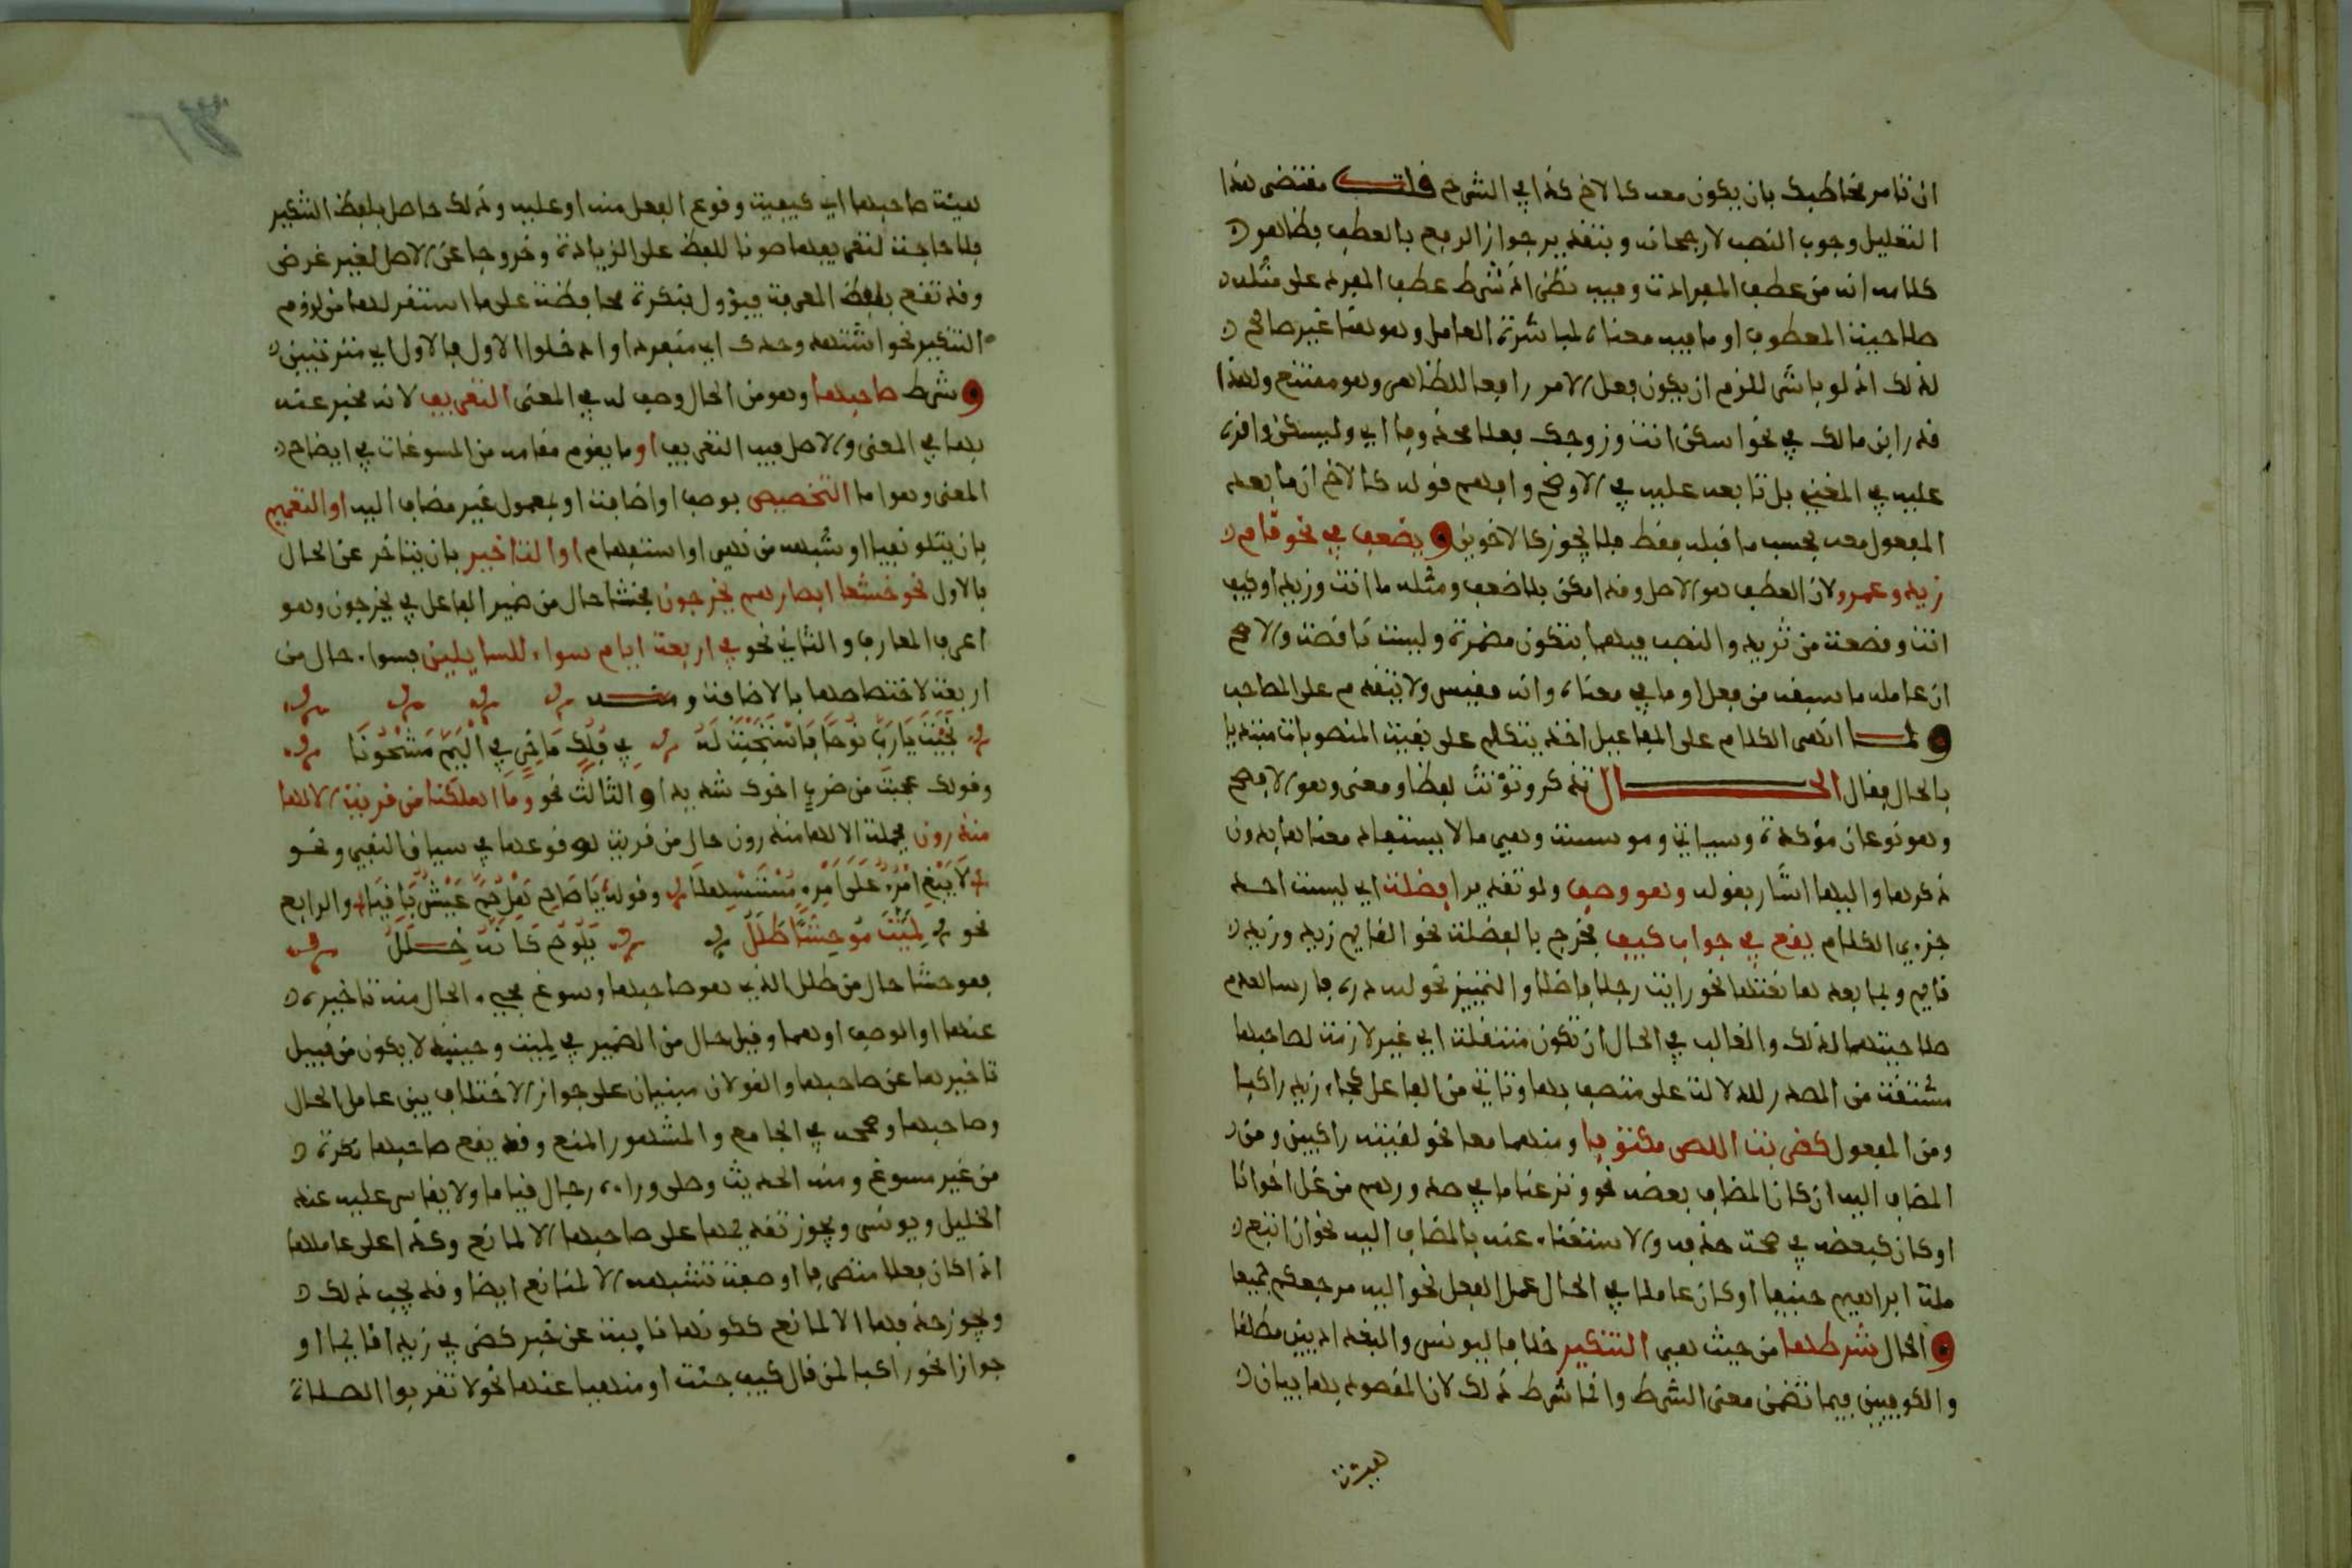 ان تامر مخاطبك بان يكون معه كالاخ كذا في الشرح قلت مقتضى هذا
التعليل وجوب النصب لا رجحانه وبتقدير جواز الرفع بالعطف فظاهر
كلامه انه من عطف المفردات وفيه نظر اذ شرط عطف المفرد على مثله
صلاحية المعطوف او ما فيه معناه لمباشرة العامل وهو هنا غير صالح
لذلك اذ لو باشر للزم ان يكون فعل الامر رافعا للظاهر وهو ممتنع ولهذا
قدر ابن مالك في نحو اسكن انت وزوجك فعلا محذوفا اي وليسكن واقره
عليه في المغني بل تابعه عليه في الاوضح وافهم قوله كالاخ ان ما بعد
المفعول معه بحسب ما قبله فقط فلا يجوز كالاخوين ويضعف في نحو قام
زيد وعمرو لان العطف هو الاصل وقد امكن بلا ضعف ومثله ما انت وزيد او كيف
انت وقصعة من ثريد والنصب فيهما بتكون مضمرة وليست ناقصة والاصح
ان عامله ما سبقه من فعل او ما في معناه وانه مقيس ولا يتقدم على المصاحب
ولما انهى الكلام على المفاعيل اخذ يتكلم على بقية المنصوبات مبتديا
بالحال فقال الحال تذكر وتؤنث لفظا ومعنى وهو الافصح
وهو نوعان مؤكدة وسياتي ومؤسسة وهي ما لا يستفاد معناها بدون
ذكرها واليها اشار بقوله وهو وصف ولو تقديرا فضلة اي ليست احد
جزءي الكلام يقع في جواب كيف فخرج بالفضلة نحو القايم زيد وزيد
قايم وبما بعدها نعتها نحو رايت رجلا فاضلا والتمييز نحو لله دره فارسا لعدم
صلاحيتهما لذلك والغالب في الحال ان تكون منتقلة اي غير لازمة لصاحبها
مشتقة من المصدر للدلالة على متصف بها وتاتي من الفاعل كجاء زيد راكبا
ومن المفعول كضربت اللص مكتوفا ومنهما معا نحو لقيته راكبين ومن
المضاف اليه ان كان المضاف بعضه نحو ونزعنا ما في صدورهم من غل اخوانا
او كان كبعضه في صحة حذفه والاستغناء عنه بالمضاف اليه نحو ان اتبع
ملة ابراهيم حنيفا او كان عاملا في الحال عمل الفعل نحو اليه مرجعكم جميعا
والحال شرطها من حيث هي التنكير خلافا ليونس والبغداديين مطلقا
والكوفيين فيما تضمن معنى الشرط وانما شرط ذلك لان المقصود بها بيان
هيئة
هيئة صاحبها اي كيفية وقوع الفعل منه او عليه وذلك حاصل بلفظ التنكير
فلا حاجة لتعريفها صونا للفظ على الزيادة وخروجا عن الاصل لغير غرض
وقد تقع بلفظ المعرفة فيؤول بنكرة محافظة على ما استقر لها من لزوم
التنكير نحو اشتهد وحدك اي منفردا وادخلوا الاول فالاول اي مترتبين
وشرط صاحبها وهو من الحال وصف له في المعنى التعريف لانه مخبر عنه
بها في المعنى والاصل فيه التعريف او ما يقوم مقامه من المسوغات في ايضاح
المعنى وهو اما التخصيص بوصف او اضافة او بمعمول غير مضاف اليه او التعميم
بان يتلو نفيا او شبهه من نهي او استفهام او التاخير بان يتاخر عن الحال
فالاول نحو خشعا ابصارهم يخرجون فخشعا حال من ضمير الفاعل في يخرجون وهو
اعرف المعارف والثاني نحو في اربعة ايام سواء للسايلين فسواء حال من
اربعة لاختصاصها بالاضافة ومنه
نَجَّيْتَ يَا رَبِّ نُوحًا فَاسْتَجَبْتَ لَهُ في فُلُكٍ مَاخِرٍ في الْيَمِّ مَشْحُونَا
وقولك عجبت من ضرب اخوك شديدا والثالث نحو وما اهلكنا من قرية الا لها
منذرون فجملة الا لها منذرون حال من قرية لوقوعها في سياق النفي ونحو
لَا يَبْغِ امْرُؤٌ عَلَى امْرِئٍ مُسْتَسْهِلَا وقوله يَا صَاحِ هَلْ حُمَّ عَيْشٌ بَاقِيَا والرابع
نحو لِمَيَّةَ مُوحِشًا طَلَلُ يَلُوحُ كَانَّهُ خِلَلُ
فموحشا حال من طلل الذي هو صاحبها وسوغ مجيء الحال منه تاخيره
عنها او الوصف او هما وقيل حال من الضمير في لمية وحينئذ لا يكون من قبيل
تاخيرها عن صاحبها والقولان مبنيان على جواز الاختلاف بين عامل الحال
وصاحبها وصححه في الجامع والمشهور المنع وقد يقع صاحبها نكرة
من غير مسوغ ومنه الحديث وصلى وراءه رجال قياما ولا يقاس عليه عند
الخليل ويونس ويجوز تقديمها على صاحبها الا لمانع وكذا على عاملها
اذا كان فعلا متصرفا او صفة تشبهه الا لمانع ايضا وقد يجب ذلك
ويجوز حذفها الا لمانع ككونها نايبة عن خبر كضربي زيدا قايما او
جوازا نحو راكبا لمن قال كيف جئت او منهيا عنها نحو لا تقربوا الصلاة